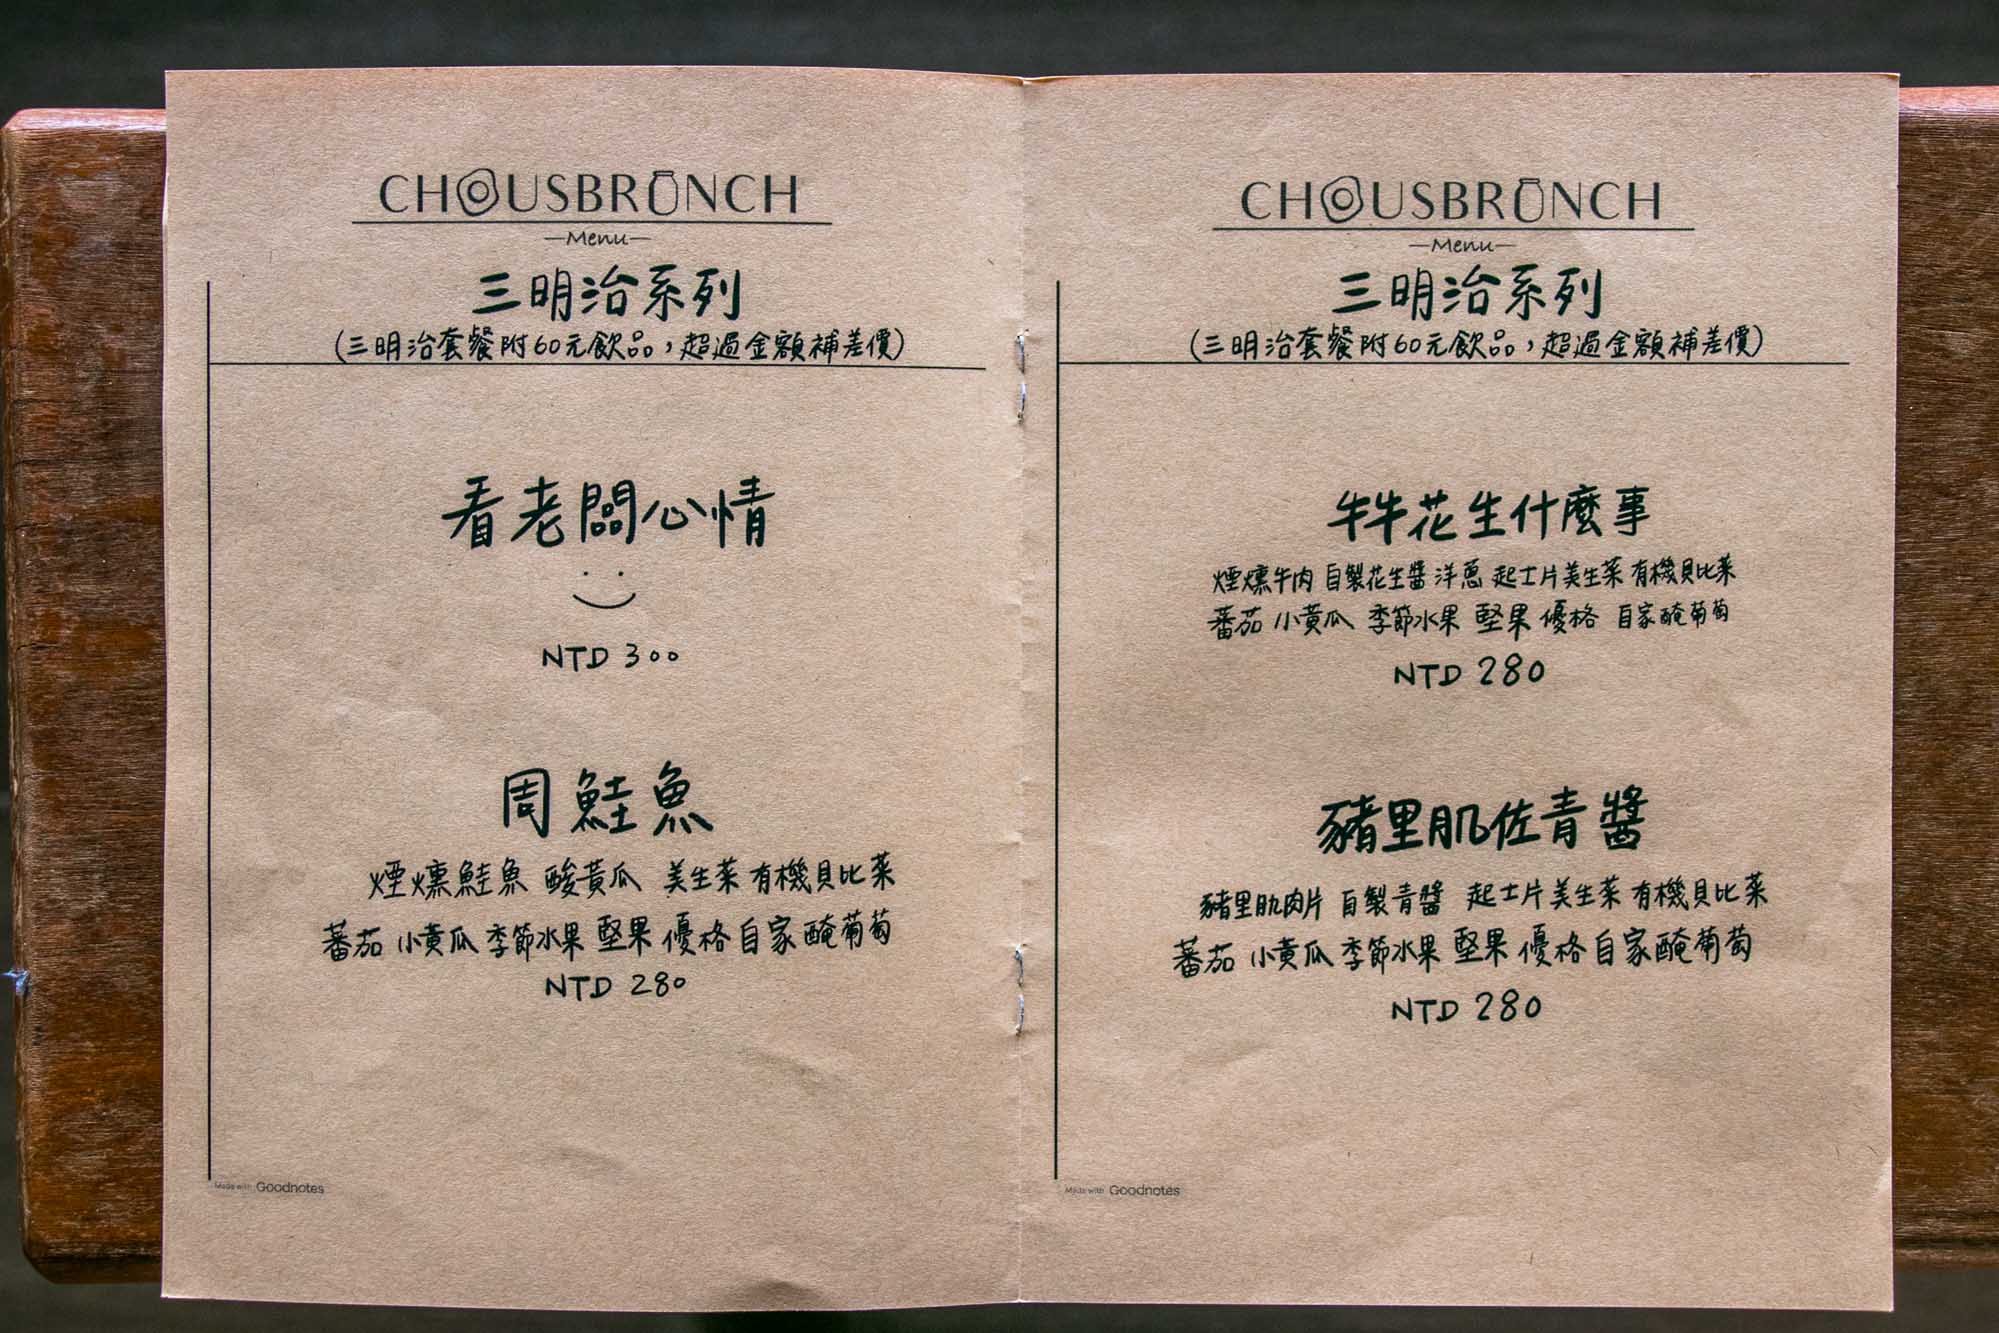 CHOUSBRUNCH
—Menu—
三明治系列
(三明治套餐附60元飲品，超過金額補差價)
看老闆心情
NTD 300
周鮭魚
煙燻鮭魚 酸黃瓜 美生菜 有機貝比菜
蕃茄 小黃瓜 季節水果 堅果 優格 自家醃葡萄
NTD 280
Made with Goodnotes
CHOUSBRUNCH
—Menu—
三明治系列
(三明治套餐附60元飲品，超過金額補差價)
牛牛花生什麼事
煙燻牛肉 自製花生醬 洋蔥 起士片 美生菜 有機貝比菜
蕃茄 小黃瓜 季節水果 堅果 優格 自家醃葡萄
NTD 280
豬里肌佐青醬
豬里肌肉片 自製青醬 起士片 美生菜 有機貝比菜
蕃茄 小黃瓜 季節水果 堅果 優格 自家醃葡萄
NTD 280
Made with Goodnotes